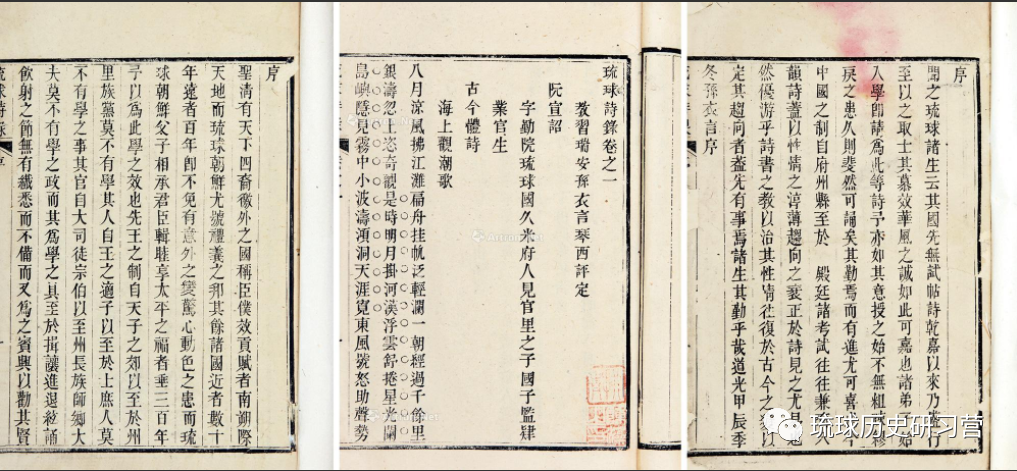 序
聖清有天下四裔徼外之國稱臣僕效貢賦者南朔際
天地而琉球朝鮮尤號禮義之邦其餘諸國近者數十
年遠者百年卽不免有意外之變驚心動色之患而琉
球朝鮮父子相承君臣輯睦享太平之福者垂三百年
予以為此學之效也先王之制自天子之郊以至於州
里族黨莫不有學其人自王之適子以至於上庶人莫
不有學之事其官自大司徒宗伯以至州長族師鄉大
夫莫不有學之政而其為學之具至於揖讓進退絃誦
飲射之節無有纖悉而不備而又為之賓興以勸其賢
琉球詩錄卷之一
教習瑞安孫衣言琴西評定
阮宣詔
字勤院琉球國久米府人見官里之子國子監肄
業官生
古今體詩
海上觀潮歌
八月涼風拂江灘福舟挂帆泛輕瀾一朝經過千餘里
銀濤忽上恣奇觀是時明月掛河漢浮雲舒捲星光闌
島嶼隱見霧中小波濤澒洞天涯寬東風號怒助聲勢
序
聞之琉球諸生云其國先無試帖詩乾嘉以來乃行
至以之取士其慕效華風之誠如此可嘉也諸弟始
入學卽請為此等詩予亦如其意授之始不無粗
戾之患久則斐然可誦矣其勤焉而有進尤可喜
中國之制自府州縣至於 殿廷諸考試往往兼
韻詩蓋以性情之淳薄趨向之正於詩見之尤
然優游乎詩書之教以治其性情往復於古今之
定其趨向者蓋先有事焉諸生其勤乎哉道光甲辰季
冬孫衣言序
琉球历史研习营